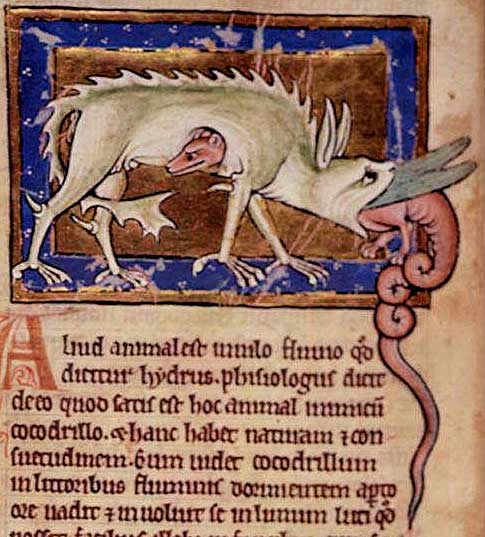 Aliud animal est in nilo fluuio qd
dicitur hydrus. phisiologus dicit
de eo quod satis est hoc animal inimicū
cocodrillo. & hanc habet naturam ⁊ con
suetudinem. Cum uidet cocodrillum
in littoribus fluminis dormientem apto
ore uadit ⁊ inuoluit se in limum luti qd